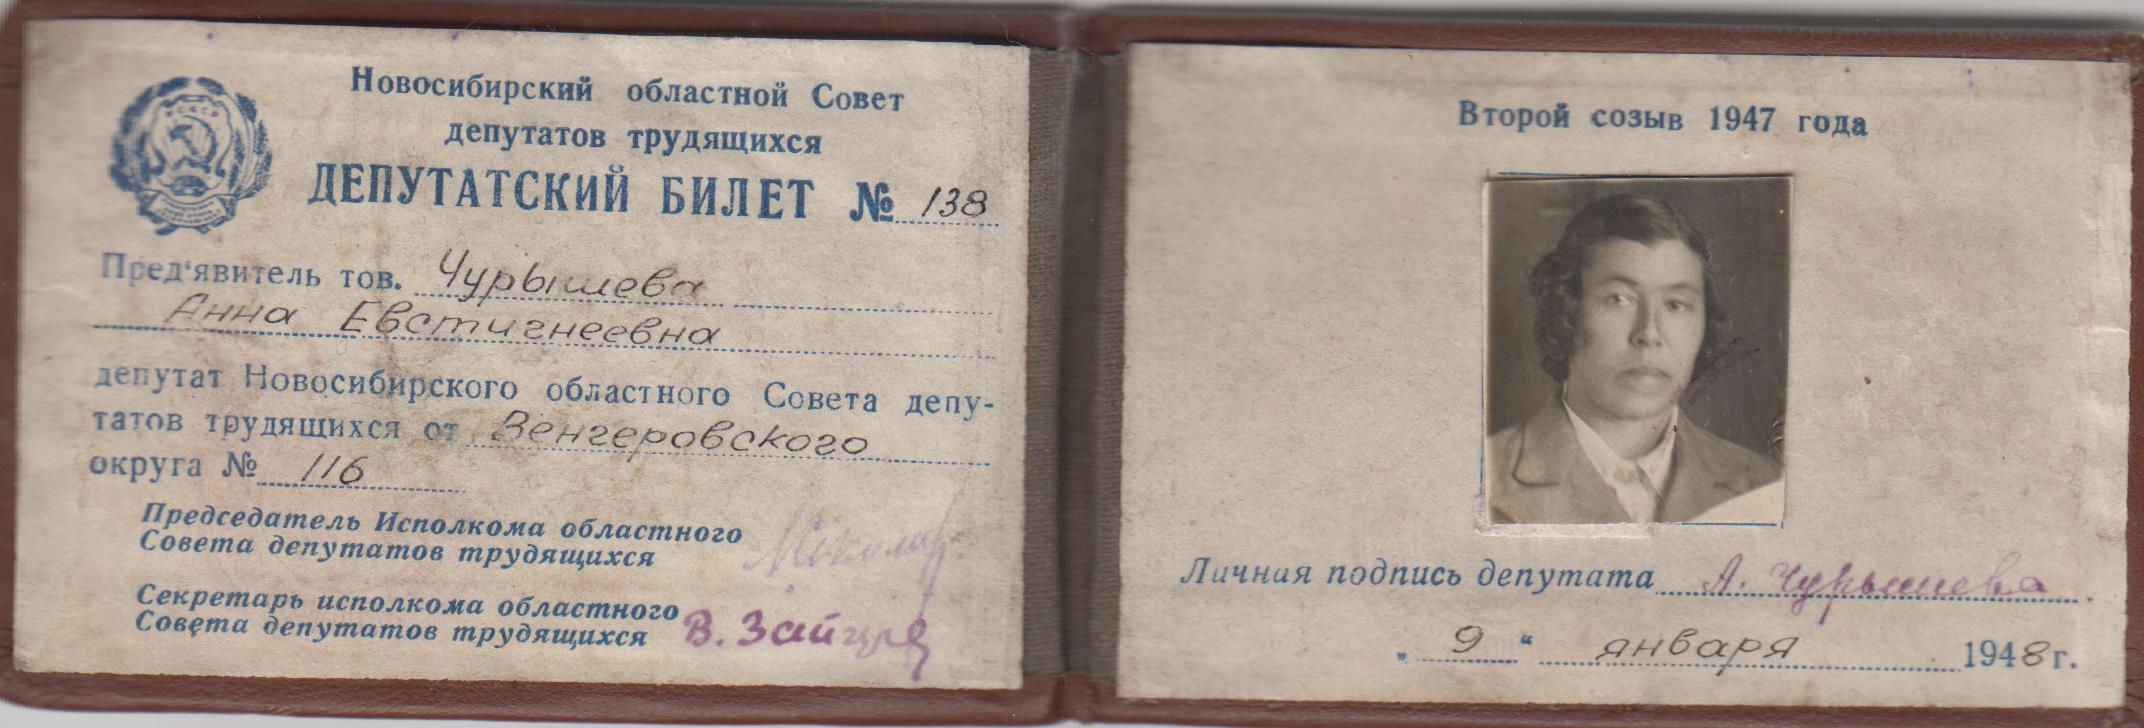 Новосибирский областной Совет
депутатов трудящихся
ДЕПУТАТСКИЙ БИЛЕТ № 138
Пред'явитель тов. Чурышева
Анна Евстигнеевна
депутат Новосибирского областного Совета депу-
татов трудящихся от Венгеровского
округа № 116
Председатель Исполкома областного
Совета депутатов трудящихся
Секретарь исполкома областного
Совета депутатов трудящихся В. Зайцев
Второй созыв 1947 года
Личная подпись депутата А. Чурышева
„ 9 “ января 1948 г.